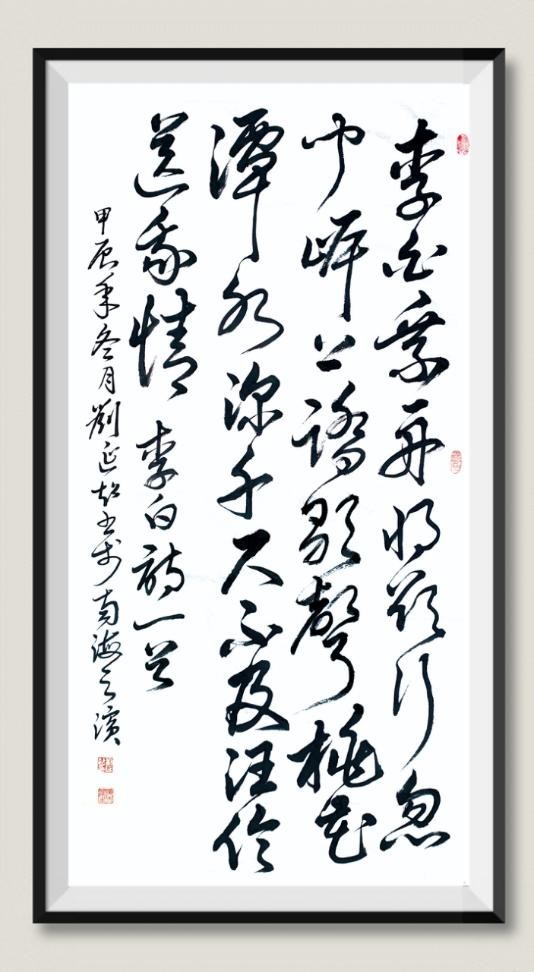 李白乘舟将欲行忽
闻岸上踏歌声桃花
潭水深千尺不及汪伦
送我情 李白诗一首
甲辰年冬月刘延超书于南海之滨